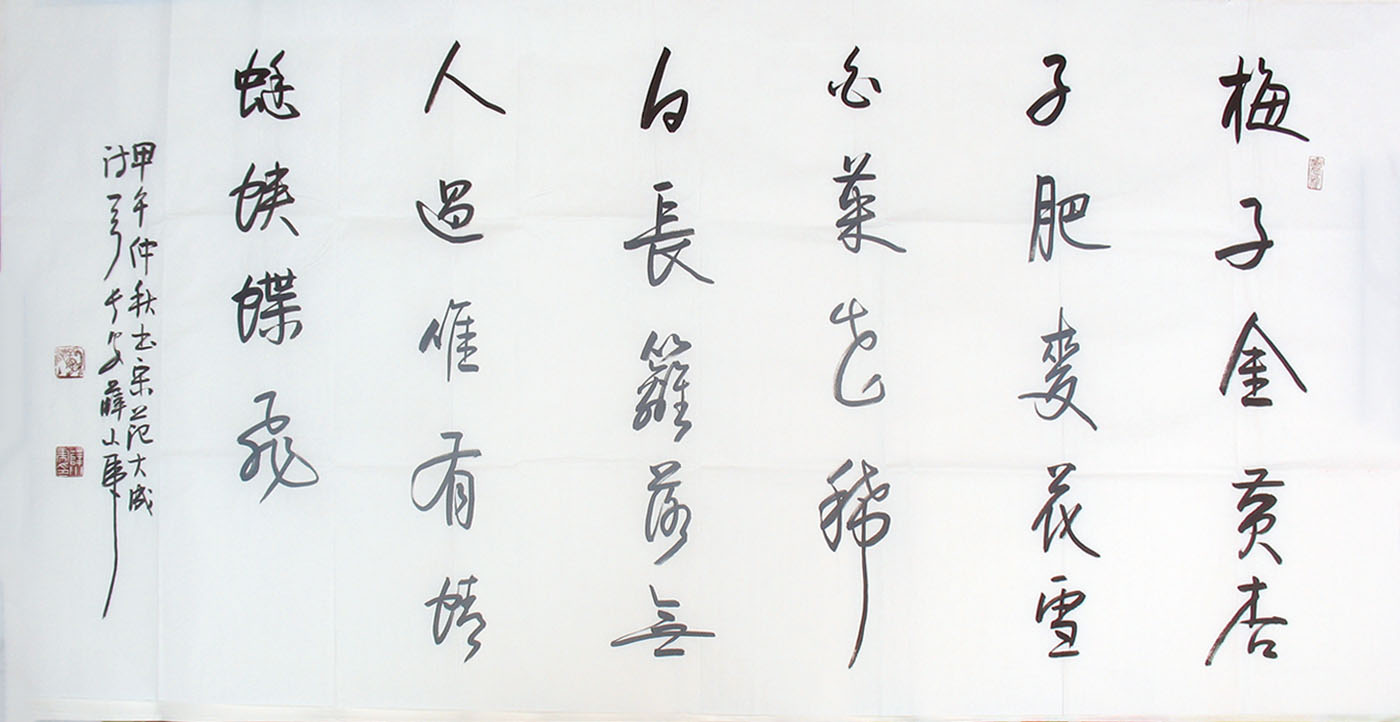 梅子金黄杏
子肥麥花雪
白菜花稀
日長籬落無
人過惟有蜻
蜓蛺蝶飛
甲午仲秋书宋范大成
诗一首长安薛